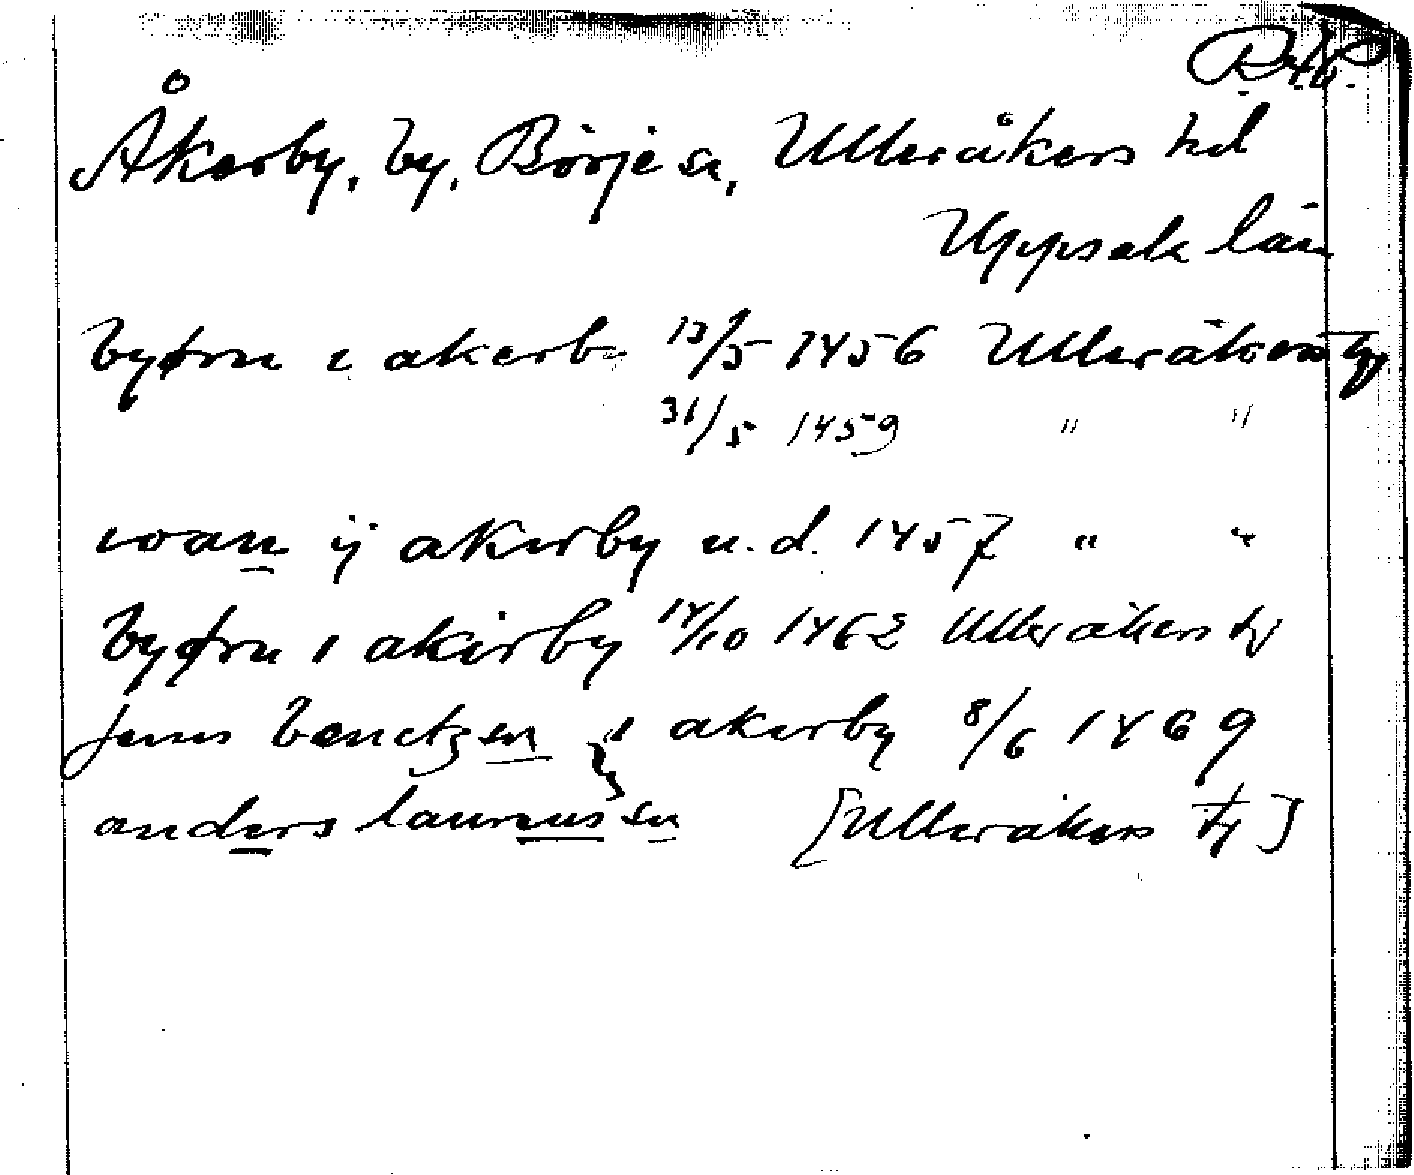 Åkerby, by, Börje sn, Ulleråkers hd
Uppsala län
byørn i akerby 13/5 1456 Ulleråkers tg
31/5 1459 " "
ioan ij akerby u.d. 1457 " "
byørn i akirby 14/10 1462 Ulleråkers tg
jenis benctzsøn i akerby 8/6 1469
anders laurenssøn [Ulleråkers tg]